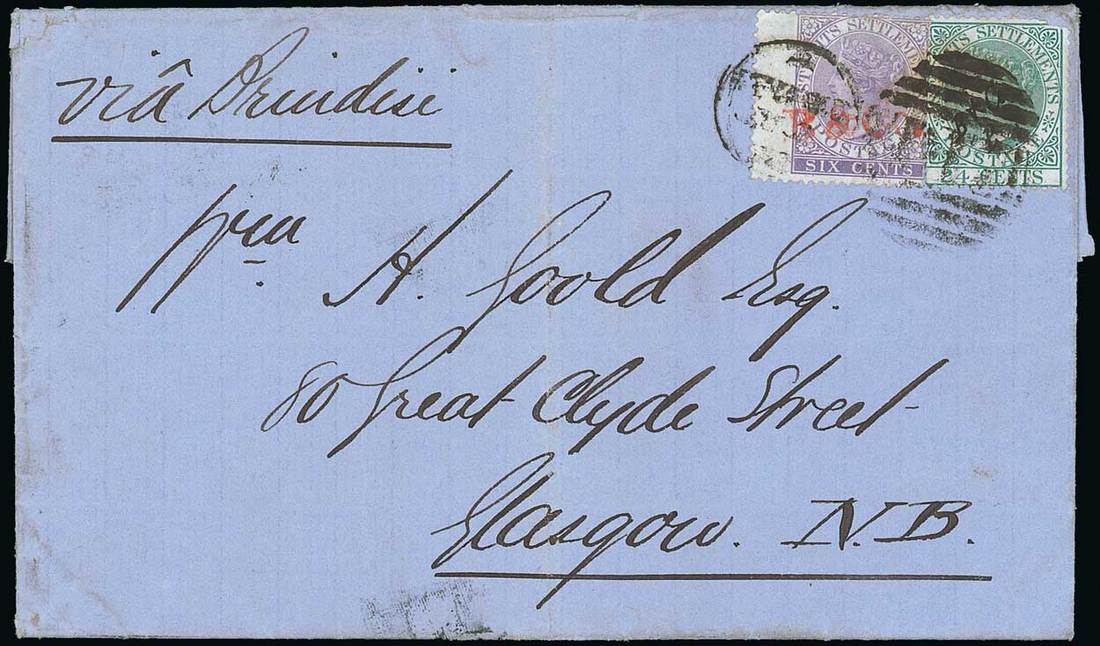 viâ Brindisi
STRAITS SETTLEMENTS
POSTAGE
SIX CENTS
STRAITS SETTLEMENTS
POSTAGE
24 CENTS
A. Goold Esq.
80 Great Clyde Street
Glasgow. N.B.